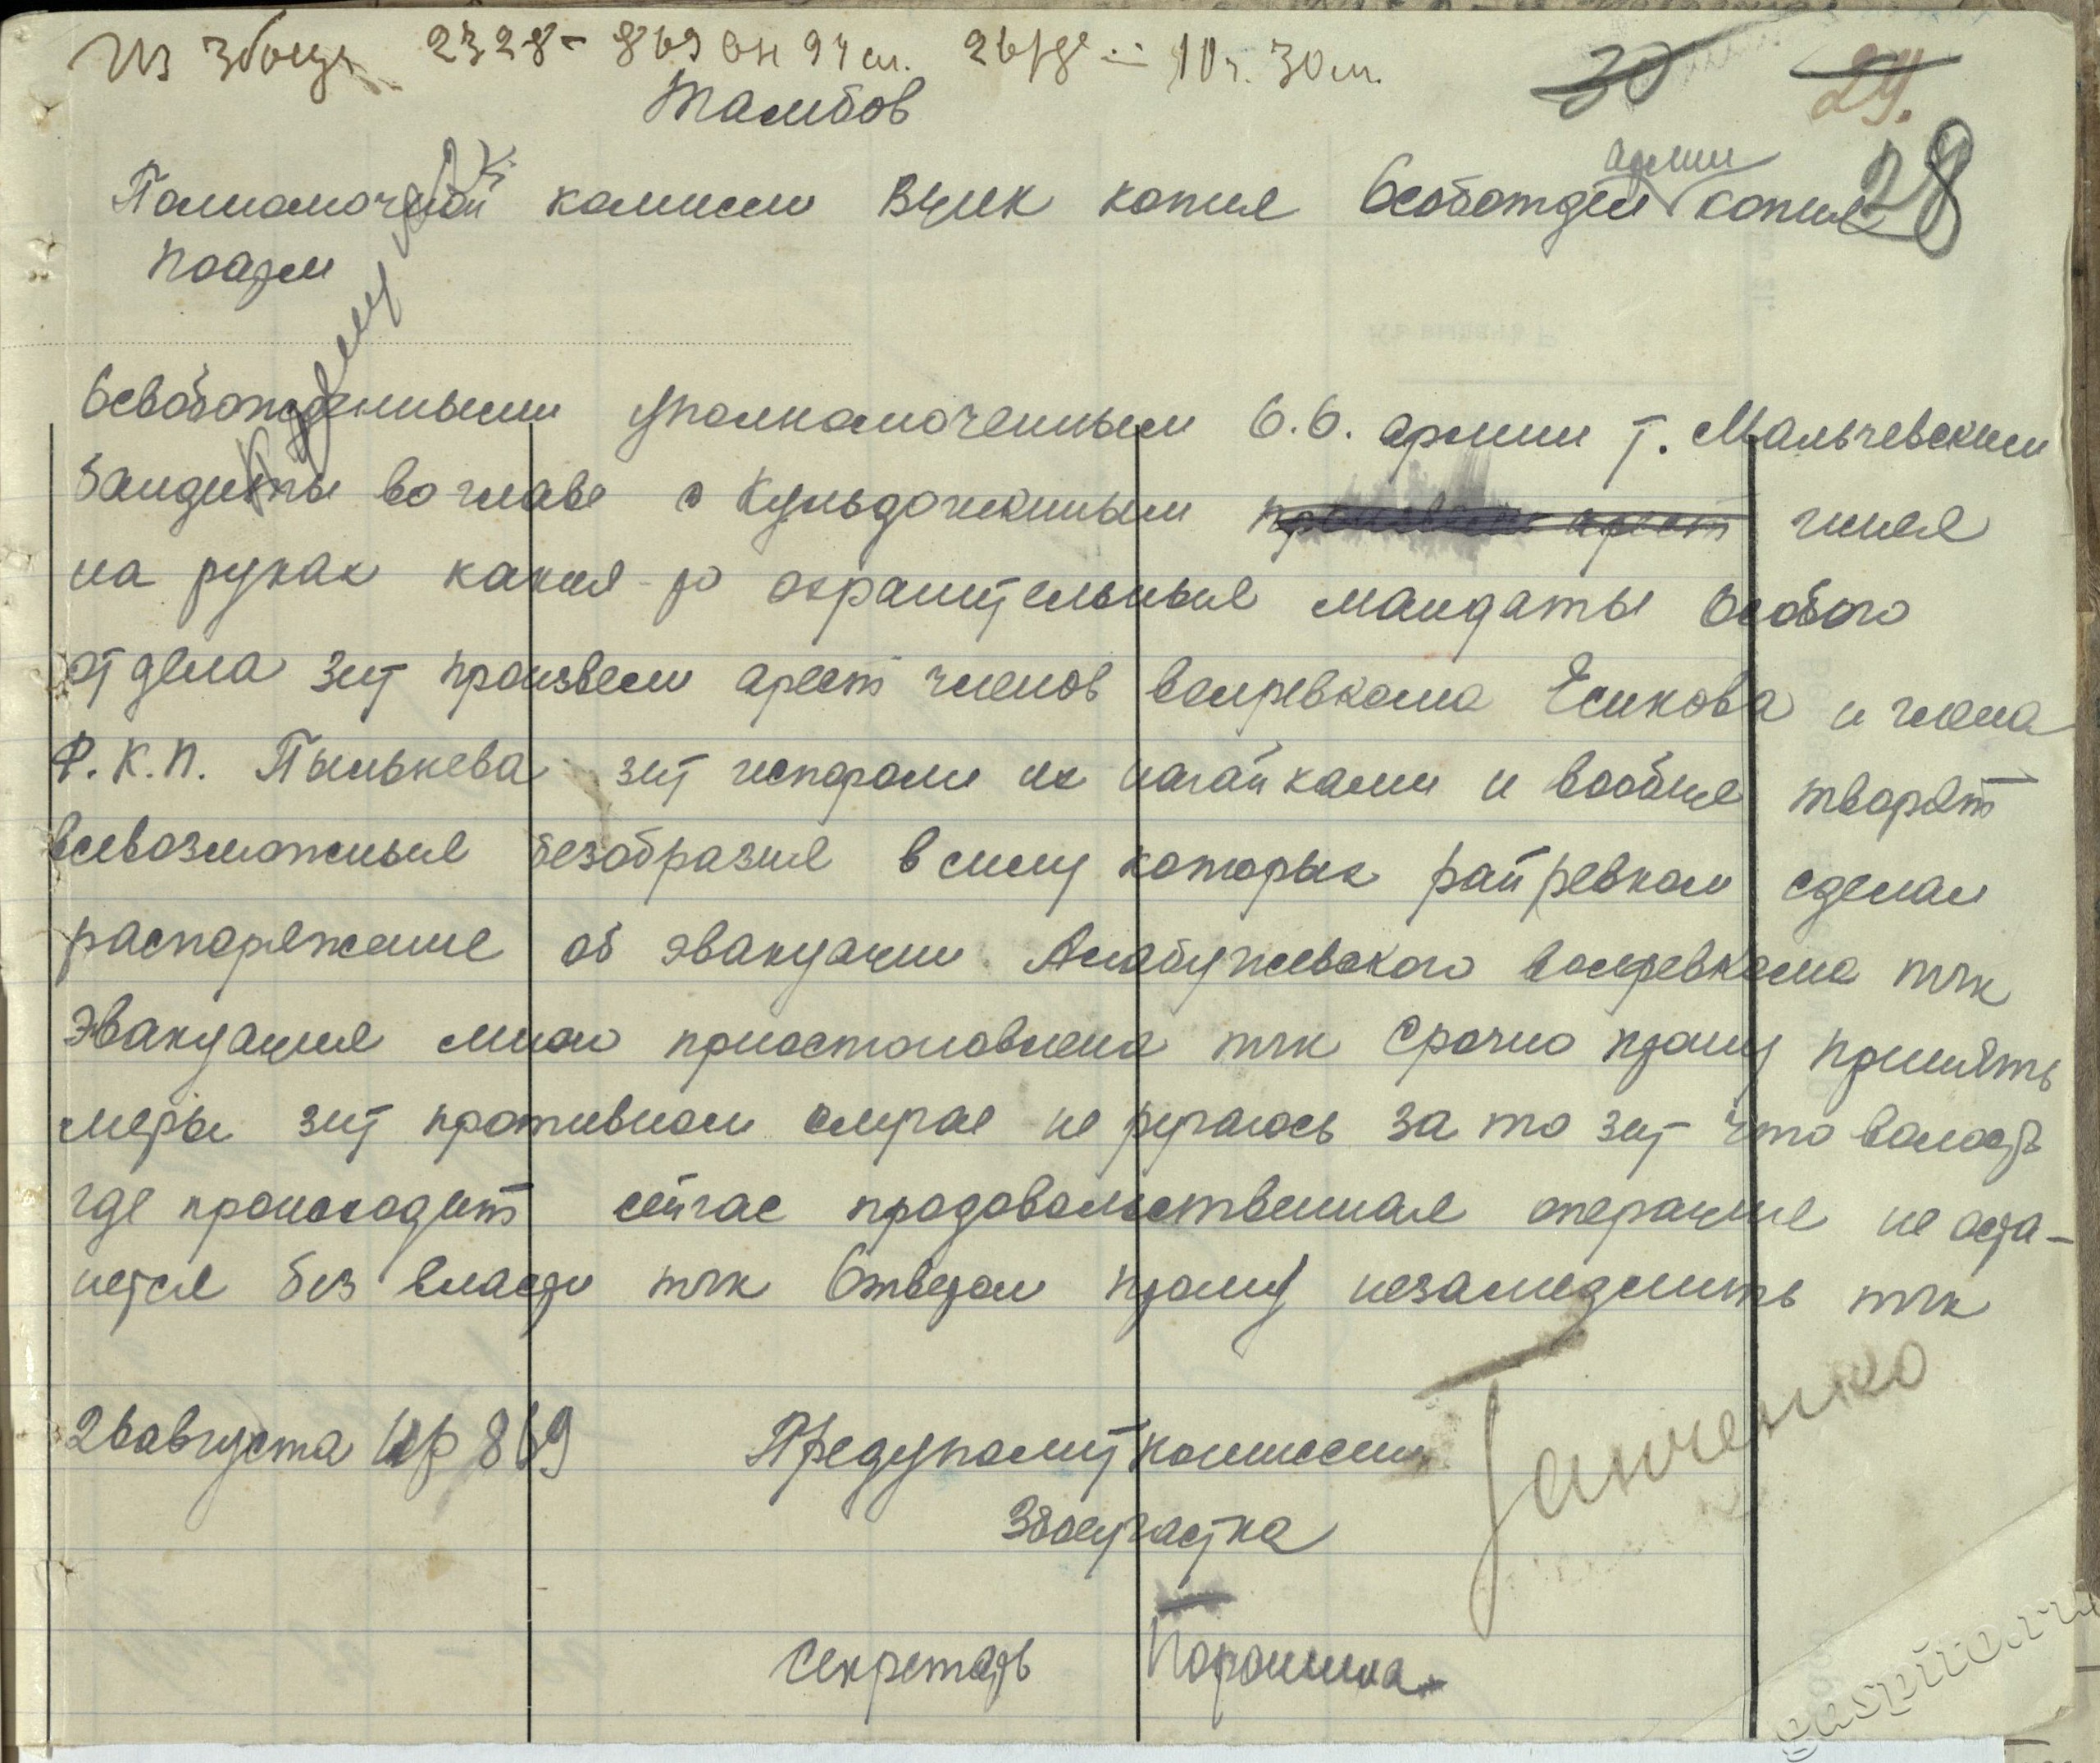 Из 3боеуч 2328 - 869 сл. 26/8 10ч. 30м.
30
29.
Тамбов
28
Полномочной комисси ВЦИК копия Особотдел армии копия
Поарм
Освобожденными уполномоченным О.О. армии т. Мальчевским
бандиты во главе с Кульдошкиным имея
на руках какия-то охранительные мандаты Особого
отдела зпт произвели арест членов волревкома Есикова и члена
Р.К.П. Пынькева зпт испороли их нагайками и вообще творят
всевозможные безобразия в силу которых райревком сделал
распоряжение об эвакуации Алабужевского волревкома тчк
Эвакуация мною приостоновлена тчк Срочно прошу принять
меры зпт противном случае не ручаюсь за то зпт что волость
где происходит сейчас продовольственная операция не оста-
нется без власти тчк Ответом прошу незамедлить тчк
26 августа Нр 869 Предуполит комиссии
3боеучастка
Ганченко
Секретарь Поронина
gaspito.ru